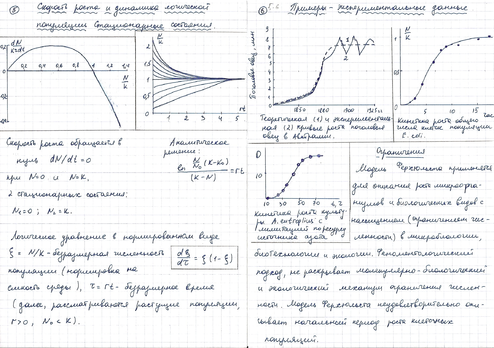 ⑤ Скорость роста и динамика логической
популяции. Стационарные состояния.
dN/K·dt
0,2
0
0,2 0,4 0,6 0,8 1 1,2
N/K
N/K
2
1,5
1
0,5
0 1 2 3 4 5 rt
Скорость роста обращается в
нуль dN/dt = 0
при N=0 и N=K.
2 стационарных состояния:
N₁=0 ; N₂=K.
Аналитическое
решение:
ln N/N₀ (K-N₀)/(K-N) = rt
Логическое уравнение в нормированном виде
ξ = N/K - безразмерная численность
популяции (нормировка на
емкость среды), τ = rt - безразмерное время
dξ/dτ = ξ(1-ξ)
(далее, рассматриваются растущие популяции,
r>0, N₀<K).
⑥ Примеры - экспериментальные данные
Поголовье овец, млн
8
7
6
5
4
3
2
1
0
1
2
1850 1900 1925
Теоретическая (1) и эксперименталь-
ная (2) кривые роста поголовья
овец в Австралии.
N/K
1
0,5
0
5 10 15 20 час
Кинетика роста общего
числа клеток популяции
E. coli.
D
10
10 30 50 70
Кинетика роста культу-
ры
лимитацией по ресурсу
источника азота
Ограничения
Модель Ферхюльста применяется
для описания роста микроорга-
низмов и биологических видов с
насыщением (ограничением чис-
ленности) в микробиологии,
биотехнологии и экологии. Феноменологический
подход, не раскрывает молекулярно-биологический
и экологический механизм ограничения числен-
ности. Модель Ферхюльста неудовлетворительно опи-
сывает начальный период роста клеточных
популяций.